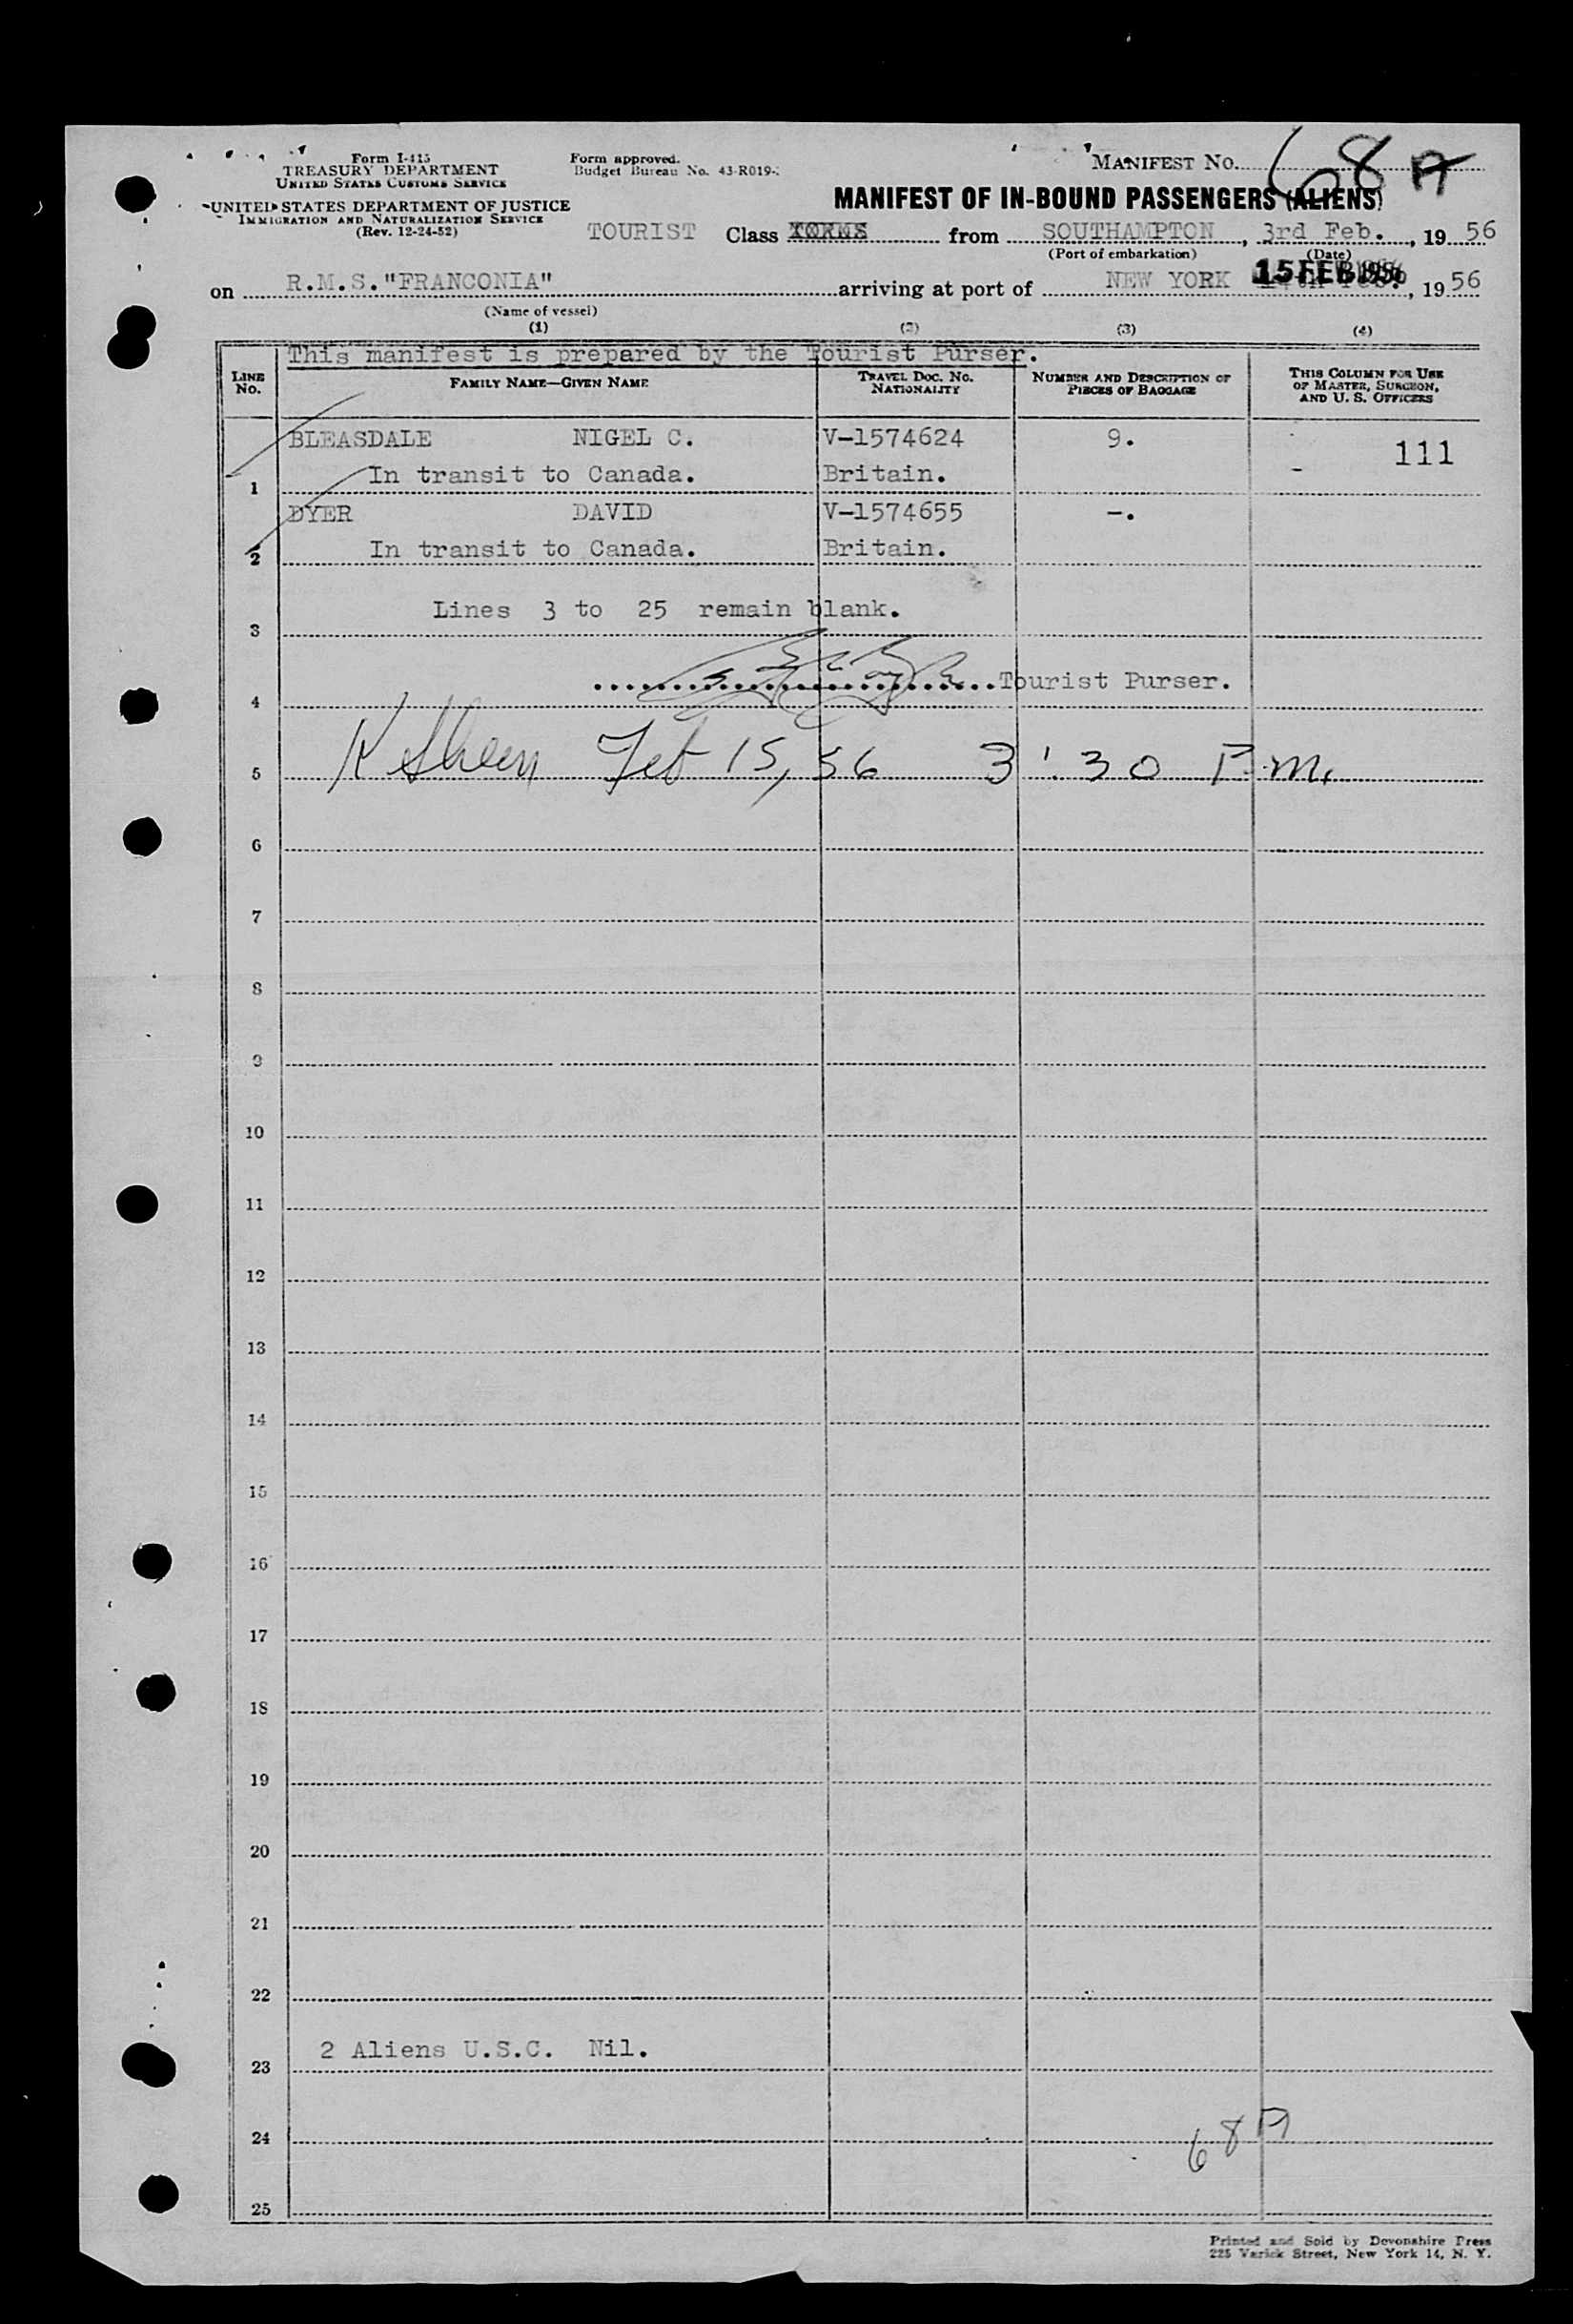 Form I-415
TREASURY DEPARTMENT
UNITED STATES CUSTOMS SERVICE
UNITED STATES DEPARTMENT OF JUSTICE
IMMIGRATION AND NATURALIZATION SERVICE
(Rev. 12-24-52)
Form approved.
Budget Bureau No. 43-R019-
MANIFEST NO. 68 A
MANIFEST OF IN-BOUND PASSENGERS (ALIENS)
TOURIST Class from SOUTHAMPTON, 3rd Feb., 19 56
(Port of embarkation) (Date)
on R.M.S."FRANCONIA" arriving at port of NEW YORK 15 FEB 1956, 19 56
(Name of vessel)
(1) (2) (3) (4)
This manifest is prepared by the Tourist Purser.
LINE No. FAMILY NAME—GIVEN NAME TRAVEL DOC. NO. NATIONALITY NUMBER AND DESCRIPTION OF PIECES OF BAGGAGE THIS COLUMN FOR USE OF MASTER, SURGEON, AND U. S. OFFICERS
BLEASDALE NIGEL C. V-1574624 9. 111
1 In transit to Canada. Britain. -
DYER DAVID V-1574655 -.
2 In transit to Canada. Britain.
Lines 3 to 25 remain blank.
3
Tourist Purser.
4
5 Feb 15, 56 3:30 P.m.
6
7
8
9
10
11
12
13
14
15
16
17
18
19
20
21
22
2 Aliens U.S.C. Nil.
23
24 68A
25
Printed and Sold by Devonshire Press
225 Varick Street, New York 14, N. Y.